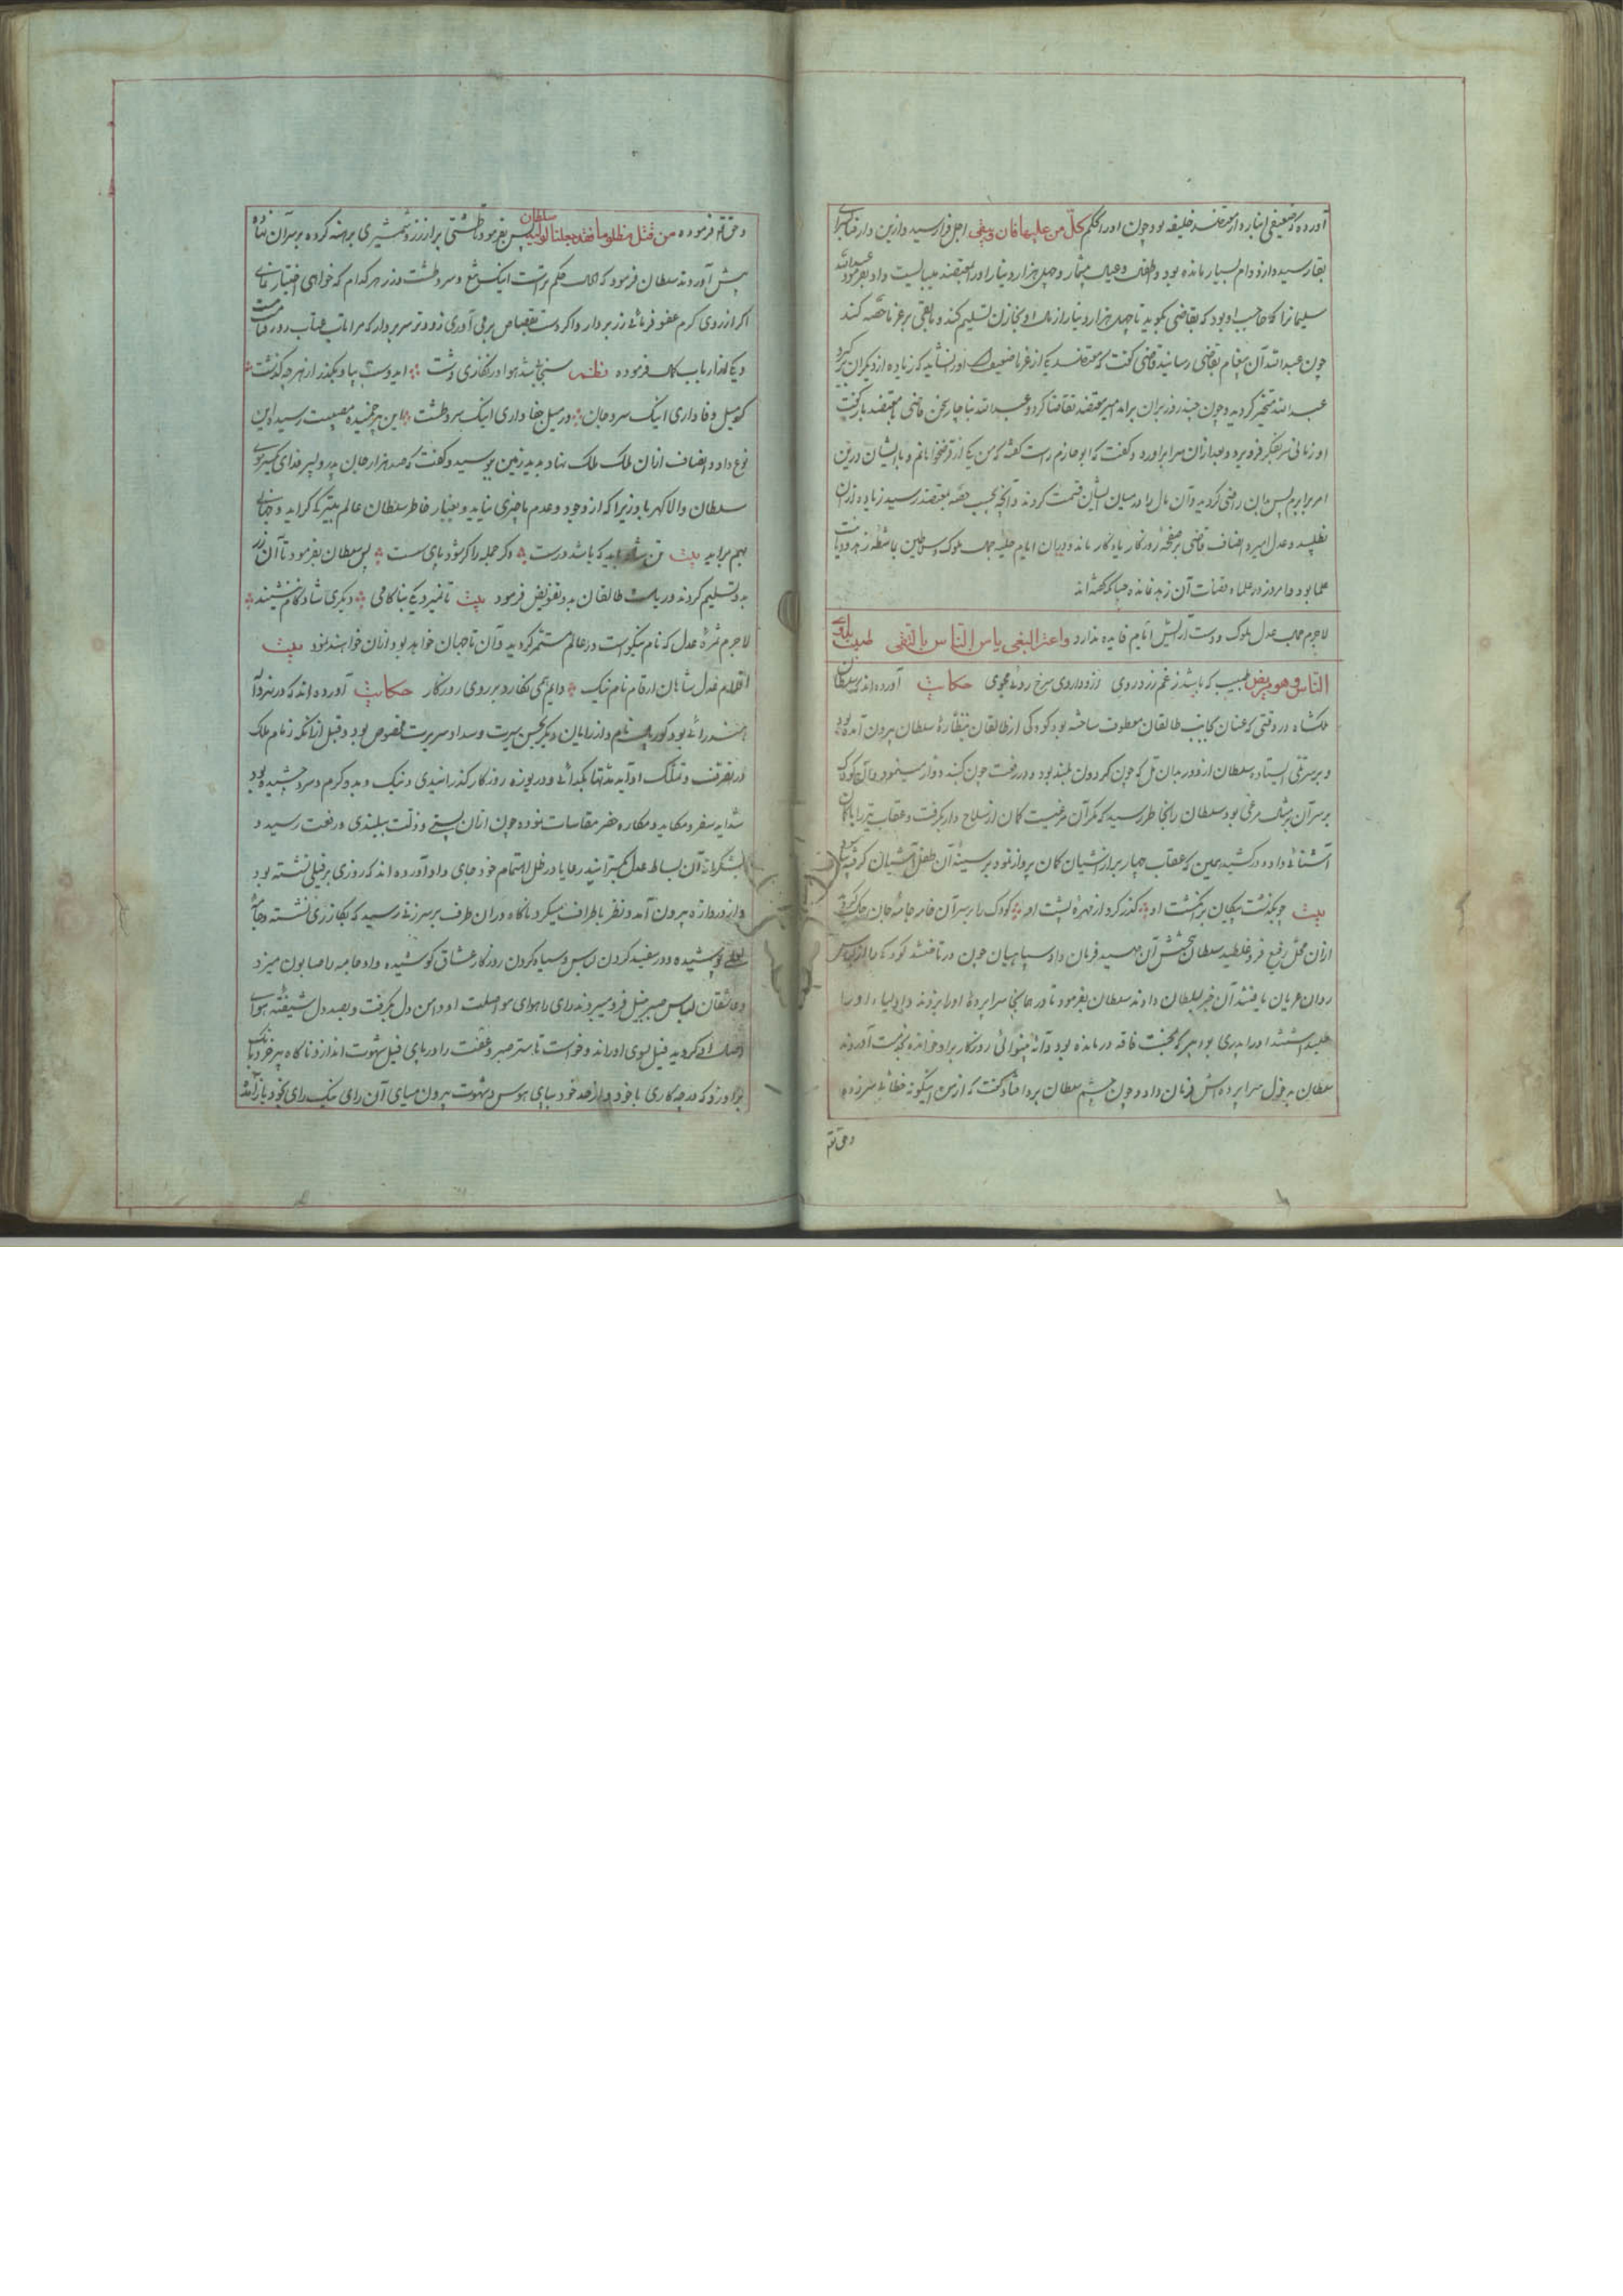 آورده که ضعیفی انباردار معتضد خلیفه بود چون اورا حکم کل من علیها فان و یبقی اجل فرا رسید و ازین دار فنا بسرای
بقا رسید و از و وام بسیار مانده بود و طفلان و عیال بیشمار و چهل هزار دینار اورا به معتضد میبایست داد بفرمود عبدالله
سلیمانرا که حاجب او بود که بقاضی بگوید تا چهل هزار دینار از مال او بخازن تسلیم کند و باقی بر غرما حصه کند
چون عبدالله آن پیغام بقاضی رسانید قاضی گفت که معتضد یکی از غرما ضعیف اورا نشاید که زیاده از دیگران برگیرد
عبدالله متحیر گردید و چون چند روز بران برآمد امیر معتضد تقاضا کرد و عبدالله بناچار سخن قاضی با معتضد بازگفت
او زمانی سر بتفکر فرو برد و بعد ازان سر برآورد و گفت که ابو حازم راست گفته که من یکی از قرضخواهانم و با ایشان درین
امر برابرم پس بدان راضی گردید و آن مال را در میان ایشان قسمت کردند و آنچه بحسب حصه بمعتضد رسید زیاده ازان
نطلبید و عدل امیر و انصاف قاضی بر صفحهٔ روزگار یادگار ماند و دران ایام حلیه جمال ملوک و سلاطین باشطه زهد و دیانت
علما بود و امروز در علما و قضات آن زهد نمانده چنانکه گفته اند
لاجرم جمال عدل ملوک و دست آرایش ایام فایده ندارد واعتر البغی یاس الناس بالتقی طبیب یداوی
الناس و هو مریض طبیب که باشد ز غم زرد روی ازو داروی سرخ روئی مجوی حکایت آورده اند که سلطان
ملکشاه در وقتی که عنان بجانب طالقان معطوف ساخته بود کودکی از طالقان بنظارهٔ سلطان بیرون آمده بود
و بر سر تلی ایستاده سلطان از دور بدان تل که چون گردون بلند بود و در رفعت چون گنبد دوار مینمود و آن کودک
بر سر آن بشکل مرغی بود سلطان را بخاطر رسید که مگر آن مرغیست کمان از سلاح دار برگرفت و عقاب تیر را با کمان
آشنائی داد و درکشید همین که عقاب چهار پر از آشیان کمان پرواز نمود بر سینهٔ آن طفل آشیان گرفت
بیت چو بگذشت پیکان بر انگشت او گذر کرد از مهرهٔ پشت او کودک را بر سر آن خار جامهٔ جان چاک گردید
ازان محل رفیع فرو غلطید سلطان بخشش آن صید فرمان داد سپاهیان چون در تاختند کودک را از لباس
روان عریان یافتند آن خبر بسلطان دادند سلطان بفرمود تا در همانجا سراپردهٔ اورا بزدند و اولیاء اورا
طلب داشتند اورا پدری بود پیر که بمحنت فاقه درمانده بود و آیهٔ بینوائی روزگار برو خوانده بخدمت آوردند
سلطان بدخول سراپرده اش فرمان داد و چون چشم سلطان برو افتاد گفت که از من اینگونه خطائی سر زده
و حق تعم
و حق تعم فرموده من قتل مظلوما فقد جعلنا لولیه سلطان پس بفرمود تا طشتی پر از زر و شمشیری برهنه کرده بر سر آن نهاده
پیش آوردند سلطان فرمود که الحال حکم تراست اینک تیغ و سر و طشت و زر هر کدام که خواهی اختیار نمای
اگر از روی کرم عفو فرمائی زر بردار و اگر دست بقصاص برمی آوری زودتر سر بردار که مرا تاب عتاب روز قیامت
و یکی از ارباب کمال فرموده نظم سبحی شد هوا و رنگاری دشت ای دوست بیا و بگذر از هر چه گذشت
گو میل وفا داری اینک سر و جان ور میل جفا داری اینک سر و طشت با این پیر خمیده مصیبت رسیده این
نوع داد و انصاف ازان ملک ملک نهاد بدید زمین بوسید و گفت که صد هزار جان پدر و پسر فدای یک موی
سلطان والا گهر باد زیرا که از وجود و عدم ما چیزی نیاید و بغبار خاطر سلطان عالم بتیرگی گراید و جهانی
بهم برآید بیت تن شاه باید که باشد درست وگر جمله را گر شود پای سست پس سلطان بفرمود تا آن زر
بدو تسلیم کردند و ریاست طالقان بدو تفویض فرمود بیت تا نمیرد یکی بناکامی دیگری شاد کام ننشیند
لاجرم ثمرهٔ عدل که نام نیکوست در عالم مستمر گردید و آن تا جهان خواهد بود ازان خواهند نمود بیت
اقلام عدل شاهان ارقام نام نیک دایم همی نگارد بر روی روزگار حکایت آورده اند که در بلاد
هند رائی بود نام و از رایان دیگر بحسن سیرت و سداد سریرت مخصوص بود و قبل ازانکه زمام ملک
در تصرف و تملک او آید مدتها بگدائی و دریوزه روزگار گذرانیدی و نیک و بد و گرم و سرد چشیده بود
شداید سفر و مکاید و مکاره حضر مقاسات نموده چون ازان پستی و ذلت ببلندی و رفعت رسید و
بشکرانهٔ آن بساط عدل بگسترانید رعایا در ظل اهتمام خود جای داد آورده اند که روزی بر فیلی نشسته بود
و از دروازه بیرون آمد و نظر باطراف میکرد ناگاه دران طرف بر سر زنی رسید که بگازری نشسته و جامهٔ
پوشیده و در سفید کردن لباس و سیاه کردن روزگار عشاق کوشیده داد جامه با صابون میزد
و عاشقان لباس صبر بنیل فرو میبردند رای را هوای مواصلت او دامن دل بگرفت و بصد دل شیفتهٔ هوای
وصال او گردید فیل بسوی او راند و خواست تا ستر صبر و عفت را در پای فیل شهوت اندازد ناگاه پیر خرد بانگ
برو زد که هر چه کاری با خود و از حد خود بپای هوس و شهوت بیرون میای آن رای نیک رای بخود باز آمد